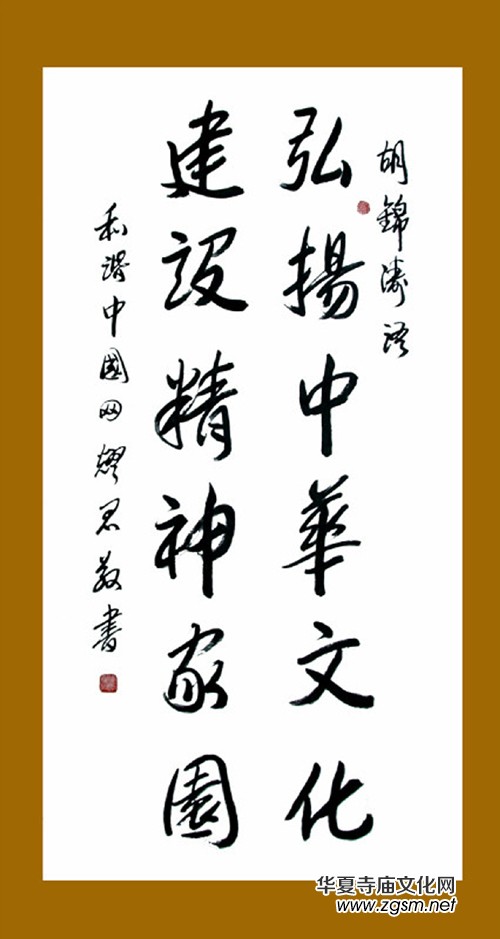 胡錦濤語
弘揚中華文化
建設精神家園
和諧中國网敬書
华夏寺庙文化网
www.zgsm.net